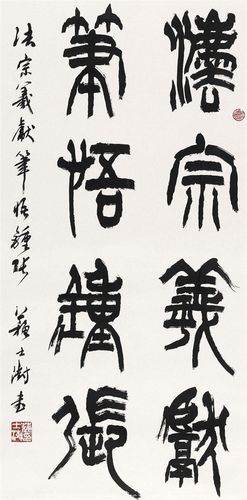 法宗羲獻
筆悟鍾張
法宗羲獻筆悟鍾張 蘇士澍書